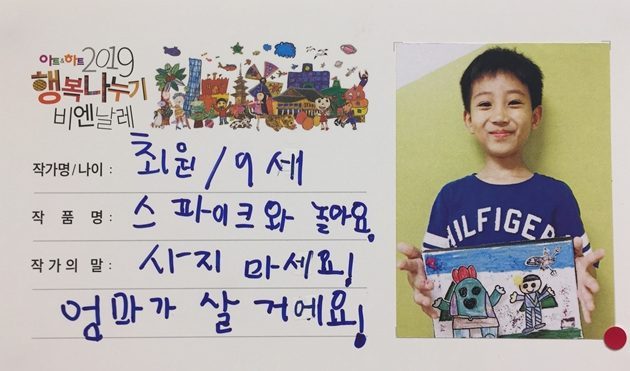 아트&하트 2019
행복나누기
비엔날레
작가명/나이 : 최윤/9세
작 품 명 : 스파이크와 놀아요.
작가의 말 : 사지 마세요!
엄마가 살 거에요!
HILFIGER